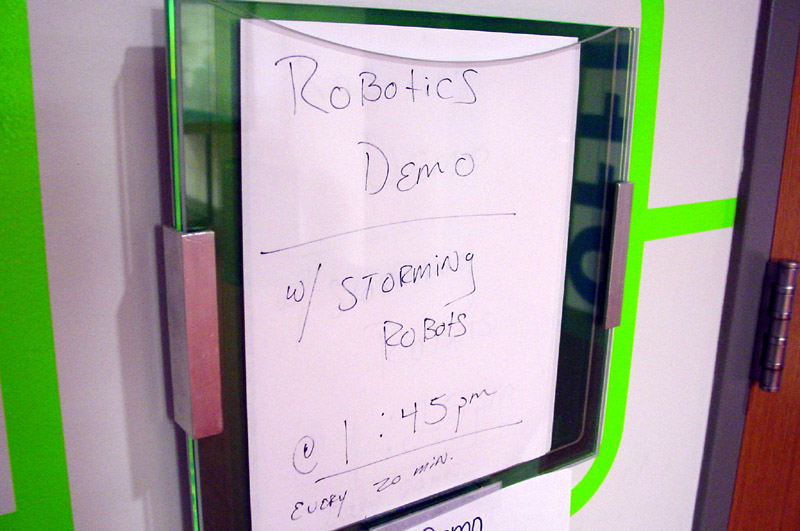 Robotics
Demo
w/ STORMiNg
RoBots
@ 1:45pm
EVERY 20 min.
Demo